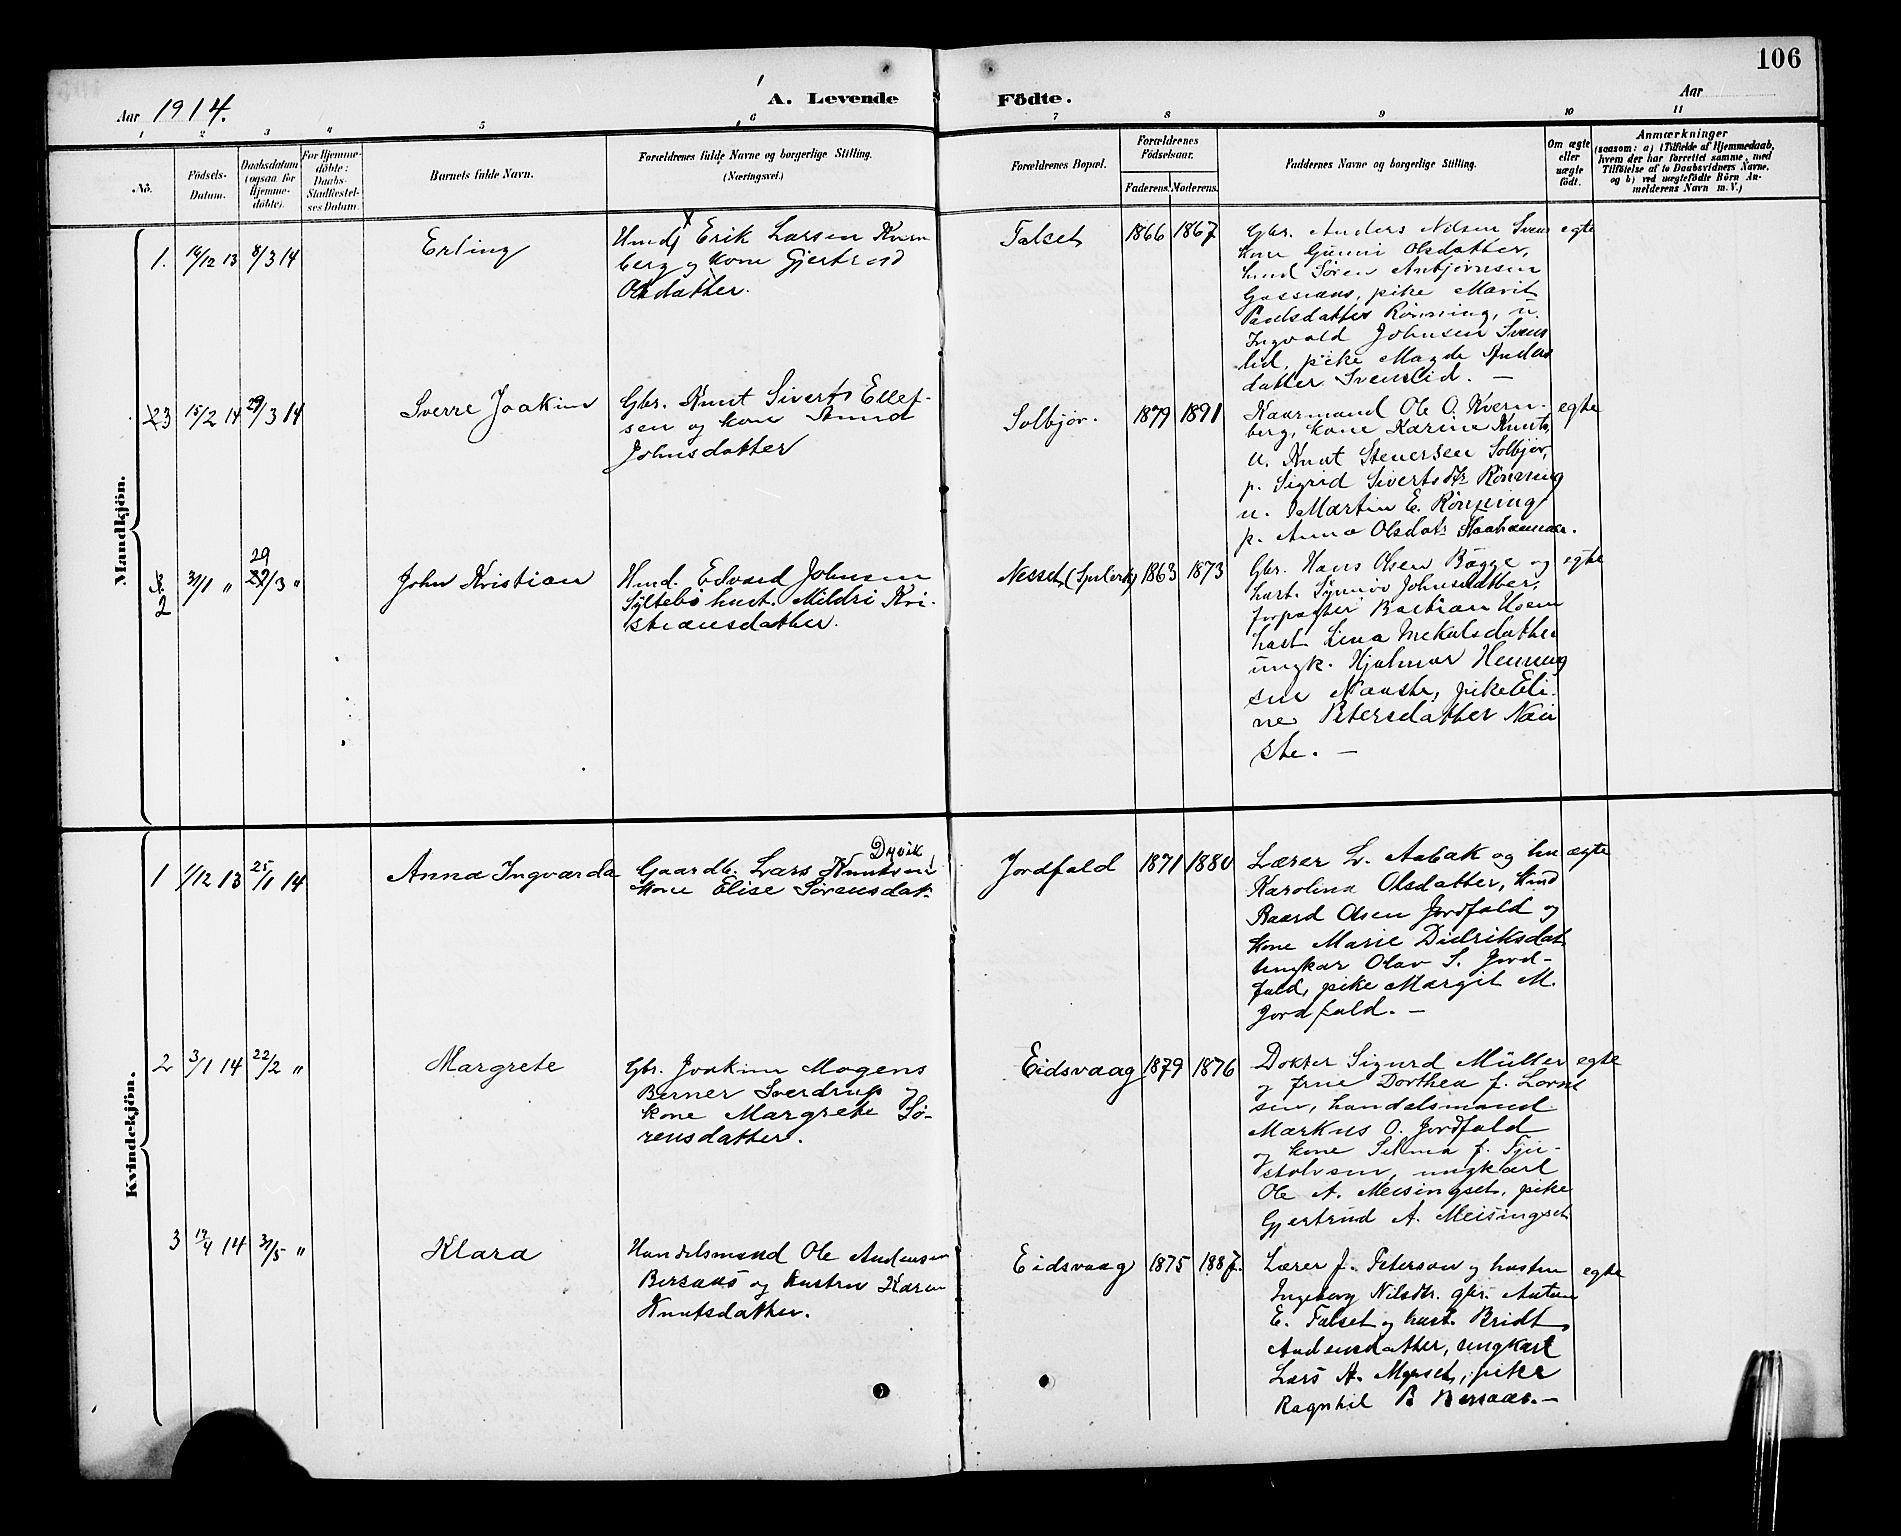 106
Aar 1914.
A. Levende Födte.
Aar
1 2 3 4 5 6 7 8 9 10 11
No.
Födsels-
Datum.
Daabsdatum
(ogsaa for
Hjemme-
döbte).
For Hjemme-
döbte:
Daabs-
Stadfæstel-
ses Datum.
Barnets fulde Navn.
Forældrenes fulde Navne og borgerlige Stilling.
(Næringsvei.)
Forældrenes Bopæl.
Forældrenes
Födselsaar.
Faderens. Moderens.
Faddernes Navne og borgerlige Stilling.
Om ægte
eller
uægte
födt.
Anmærkninger
(saasom: a) i Tilfælde af Hjemmedaab,
hvem der har forrettet samme, med
Tilföielse af to Daabsvidners Navne,
og b) ved uægtefödte Börn An-
melderens Navn m. V.)
Mandkjön.
1. 16/12 13 8/3 14
Erling
Hmd Erik Larsen Kvern
berg og kone Gjertrud
Olsdatter.
Talset
1866 1867
Gbr. Anders Nilsen Svens
kone Gunni Olsdatter,
hmd Søren Anbjørnsen
pike Marit
Paulsdatter Rønning, u.
Ingvald Johnsen Svens
lid, pike Magda Anders
datter Svenslid. —
egte
3 15/2 14 29/3 14
Sverre Joakim
Gbr. Knut Siverts Ellef-
sen og kone
Johnsdatter
Solbjør.
1879 1891
Kaarmand Ole O. Kvern-
berg, kone Karine Knuts,
u. Knut Stenersen Solbjør,
p. Sigrid Sivertsdtr Rønning
u. Martin E. Rønning
p. Anna Olsdat.
egte
2 31/1 " 29/3 "
John Kristian
Hmd. Edvard Johnsen
Syltebø hust. Mildri Kri-
stiansdatter.
Nesset
1863 1873
Gbr. Hans Olsen Bøgge og
hust. Synnøv Johnsdatter,
forpagter Bastian Hoem
hust Lina Mekalsdatter
ungk. Hjalmar Henning
sen Nauste, pike Eli-
ne Petersdatter Nau
ste. —
egte
Kvindekjön.
1 1/12 13 25/1 14
Anna Ingvarda
Dyvik
Gaardb. Lars Knutsen
kone Elise Sørensdat.
Jordfald
1871 1880
Lærer L. Aabak og hu
Karolina Olsdatter, Hmd
Baard Olsen Jordfald og
kone Marie Didriksdat
ungkar Olav S. Jord-
fald, pike Margit M.
Jordfald. —
ægte
2 3/1 14 22/2 "
Margrete
Gbr. Joakim Mogens
Berner Sverdrup og
kone Margrete Sø-
rensdatter.
Eidsvaag
1879 1876
Dokter Sigurd Müller
og frue Dorthea f. Lorent
sen, handelsmand
Markus O. Jordfald
og kone Selma f. Tju-
stolvsen, ungkarl
Ole A. Meisingset, pike
Gjertrud A. Meisingset
egte
3 19/4 14 31/5 "
Klara
Handelsmand Ole Andersen
Bersaas og hustru Karen
Knutsdatter.
Eidsvaag
1875 1887.
Lærer J. Peterson og hustru
Ingeborg Nilsdtr. gbr. Anton
E. Talset og hust. Bridt
Andersdatter, ungkarl
Lars A. Myrset, pike
Ragnhil B Bersaas. —
egte